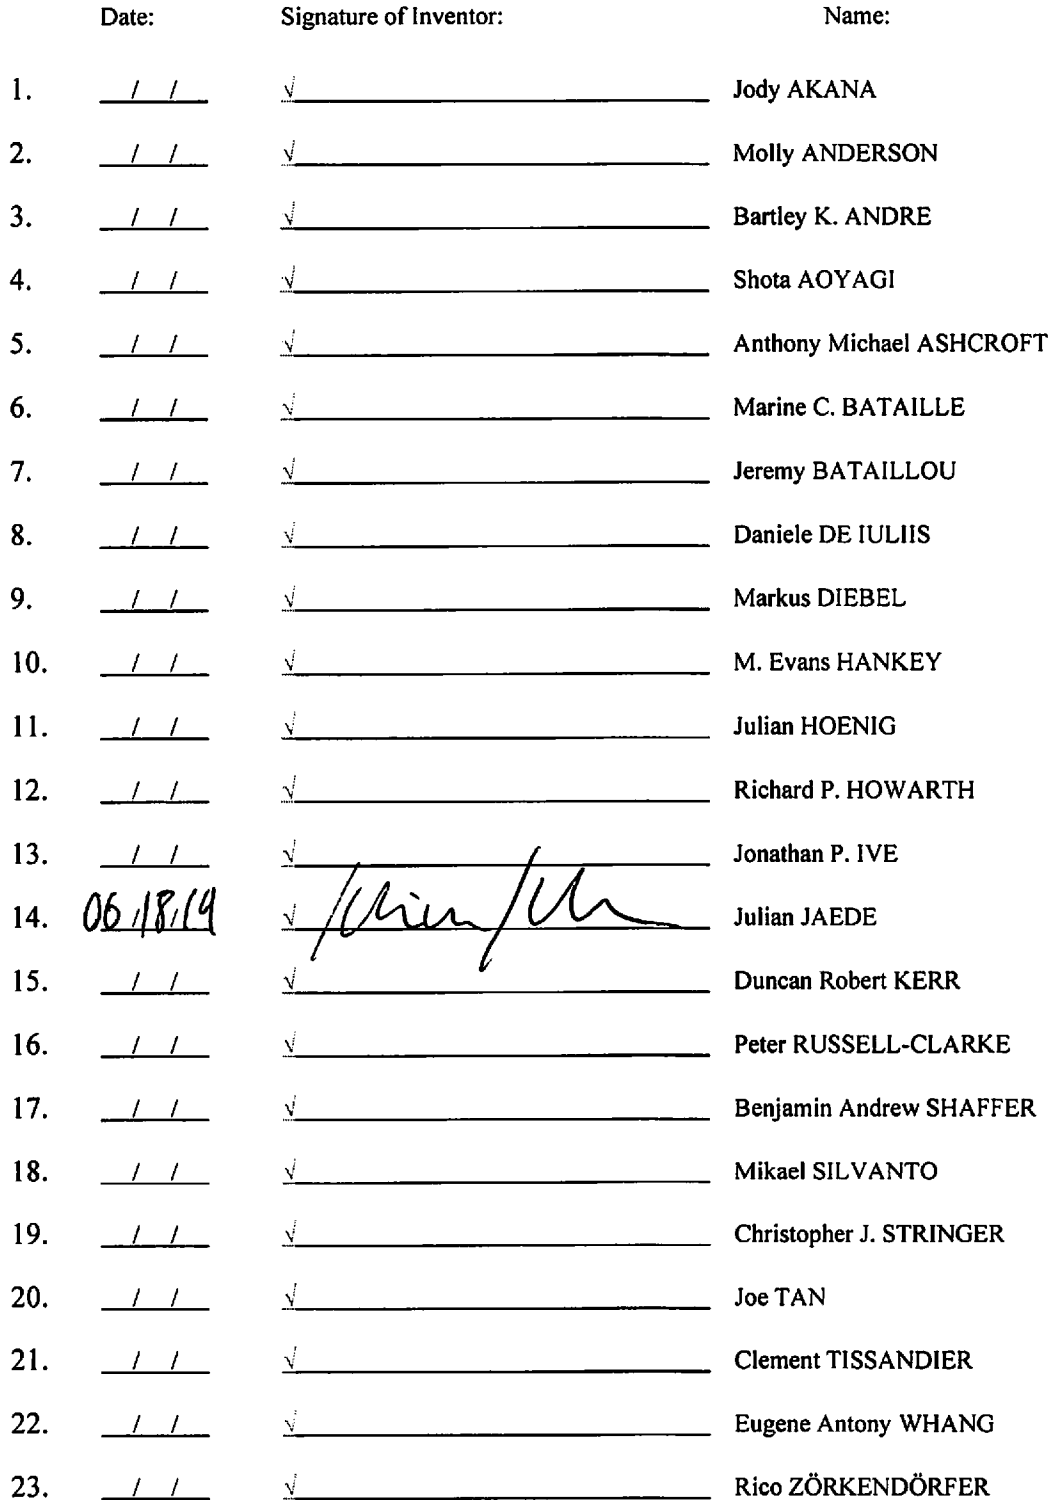 Date: Signature of Inventor: Name:
1. / / √ Jody AKANA
2. / / √ Molly ANDERSON
3. / / √ Bartley K. ANDRE
4. / / √ Shota AOYAGI
5. / / √ Anthony Michael ASHCROFT
6. / / √ Marine C. BATAILLE
7. / / √ Jeremy BATAILLOU
8. / / √ Daniele DE IULIIS
9. / / √ Markus DIEBEL
10. / / √ M. Evans HANKEY
11. / / √ Julian HOENIG
12. / / √ Richard P. HOWARTH
13. / / √ Jonathan P. IVE
14. 06/18/19 √ Julian JAEDE
15. / / √ Duncan Robert KERR
16. / / √ Peter RUSSELL-CLARKE
17. / / √ Benjamin Andrew SHAFFER
18. / / √ Mikael SILVANTO
19. / / √ Christopher J. STRINGER
20. / / √ Joe TAN
21. / / √ Clement TISSANDIER
22. / / √ Eugene Antony WHANG
23. / / √ Rico ZÖRKENDÖRFER